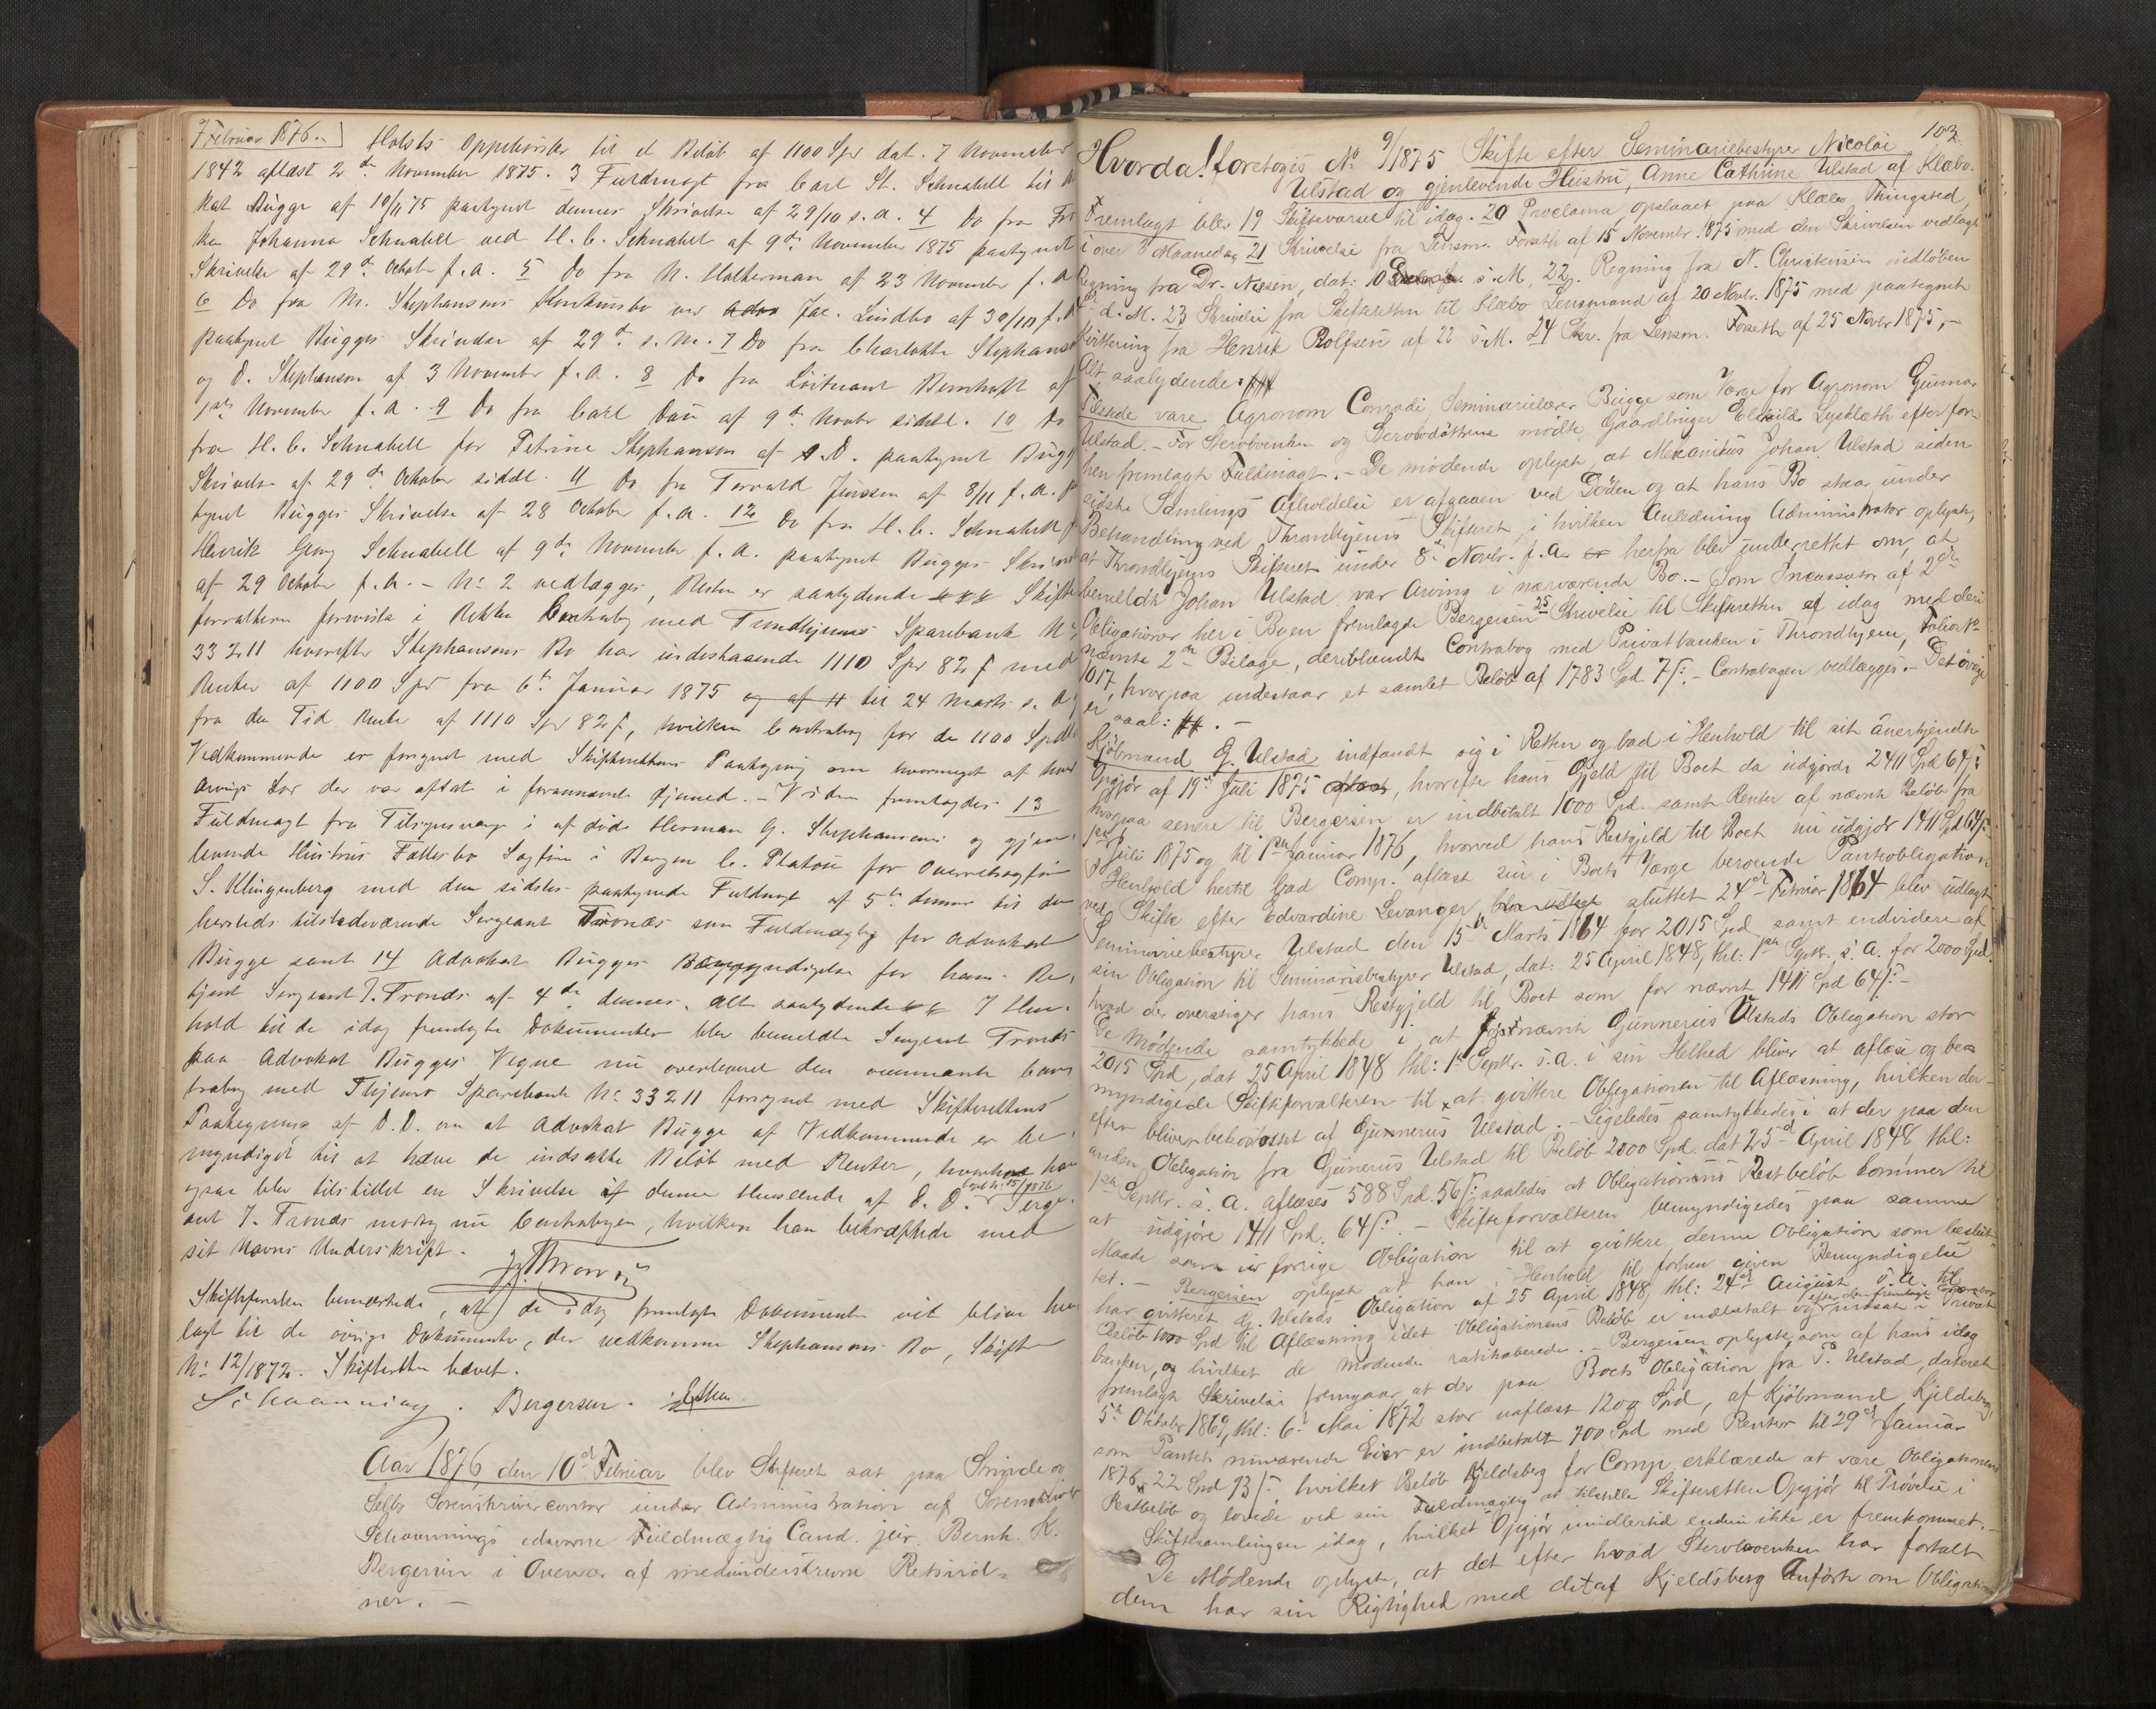 7 Februar 1876.
Holsts Oppebørsler til et Beløb af 1100 Spd dat. 7 November
1842 aflæst 2den November 1875. 3 Fuldmagt fra Carl St. Schnabell til
kat Bugge af 10/11 75 paategnet dennes Skrivelse af 29/10 s. a. 4 Do fra
ken Johanna Schnabell ved H. C. Schnabell af 9de November 1875 paategnet
Skrivelse af 29de Oktober f. a. 5 Do fra N. Holterman af 23 November f. a
6 Do fra M. Stephansons ved Jac. Lindbo af 30/10 f. a
paategnet Bugges Skrivelse af 29de s. M. 7 Do fra Charlotte Stephanson
og D. Stephanson af 3 November f. a. 8 Do fra Løitnant Bernhoft af
November f. a. 9 Do fra Carl Dau af 9de Novbr sidstl. 10 Do
fra H. C. Schnabell for Petrine Stephanson af s. D. paategnet
Skrivelse af 29de Oktober sidstl. 11 Do fra Torvald Jenssen af 8/11 f. a.
tegnet Bugges Skrivelse af 28 Oktober f. a. 12 Do fra H. C. Schnabell
Henrik Georg Schnabell af 9de November f. a. paategnet Bugges
af 29 Oktober f. a. - No 2 vedlægges, Resten er saalydende Skifte
forvalteren foreviste i Retten Contrabog med Trondhjems Sparebank No
33211 hvorefter Stephansons Bo har indestaaende 1110 Spd 82 ß med
Renter af 1100 Spd fra 6te Januar 1875 og af til 24 Marts s. A.
fra den Tid Rente af 1110 Spd 82 ß, hvilken Contrabog for de 1100 Spd
Vedkommende er forsynet med Skifterettens Paategning om hvormeget af hver
Arvings Lod der var afsat i forannævnte Øiemed. - Viden fremlagdes 13
Fuldmagt fra Tilsynsværge i afdøde Herman G. Stephansons og gjen-
levende Hustrus Fællesbo Sagfører i Bergen C. Platou for Overretssagfører
S. Klingenberg med den sidstes paategnede Fuldmagt af 5te dennes til den
herteds tilstedeværende Sergeant Tronæs som Fuldmægtig for Advokat
Bugge samt 14 Advokat Bugges Bemyndigelse for ham. Be-
tjent Sergeant J. Tronds af 4de dennes. Alt saalydende I Hen-
hold til de idag fremlagte Dokumenter blev bemeldte Sergeant Tronds
paa Advokat Bugges Vegne nu overleveret den ommeldte Con-
trabog med Thjems Sparebank No 33211 forsynet med Skifterettens
Paategning af D. D. om at Advokat Bugge af Vedkommende er be-
myndiget til at hæve de indsatte Beløb med Renter, hvorhos han
ogsaa blev tilstillet en Skrivelse i denne Henseende af D. D. Serge-
ant J. Tronds modtog nu Contrabogen, hvilken han bekræftede med
sit Navns Underskrift.
J. Tronds
Skifteforvalteren bemærkede, at de idag fremlagte Dokumenter vil blive hen-
lagt til de øvrige Dokumenter, der vedkomme Stephansons Bo, Skifte
No 12/1872. Skifteretten hævet.
Schaanning. Bergersen.
Aar 1876, den 10de Februar blev Skifteret sat paa Strinde og
Selbo Sorenskrivercontor under Administration af Sorenskriver
Schaannings edsvorne Fuldmægtig Cand. jur. Bernh. K.
Bergersen i Overvær af medunderskrevne Retsvid-
ner. -
103.
Hvorda! foretoges No 9/1875 Skifte efter Seminariebestyrer Nicolai
Ulstad og gjenlevende Hustru, Anne Cathrine Ulstad af Klæbo.
Fremlagt blev 19 Skiftevarsel til idag. 20 Proclama opslaaet paa Klæbo Thingsted,
i over 3 Maaneder, 21 Skrivelse fra Lensm. Forseth af 15 Novembr. 1875 med den Skrivelsen vedlagte
Regning fra Dr. Nissen, dat: 10 s. M. 22. Regning fra N. Christensen indløben
d. M. 23 Skrivelse fra Skifteretten til Klæbo Lensmand af 20 Novbr. 1875 med paategnet
Kvittering fra Henrik Rolfsen af 22 s. M. 24 Skr. fra Lensm. Forseth af 25 Novbr 1875, -
Alt saalydende:
Tilstede vare Agronom Conradi, Seminarielærer Bugge som Værge for Agronom Gunnar
Ulstad. - For Stervboenken og Stervbodøttrene mødte Gaardbruger Lysklæth efter for-
hen fremlagt Fuldmagt. - De mødende oplyste, at Mekanikus Johan Ulstad siden
sidste Samlings Afholdelse er afgaaen ved Døden og at hans Bo staar under
Behandling ved Throndhjems Skifteret, i hvilken Anledning Administrator oplyste,
at Throndhjems Skifteret under 8de Novbr. f. a. er herfra blev underrettet om, at
bemeldte Johan Ulstad var Arving i nærværende Bo. - Som Incassator af 2de
Obligationer her i Byen fremlagde Bergersen 25 Skrivelse til Skifteretten af idag med deri
nævnte 2de Bilage, deriblandt Contrabog med Privatbanken i Throndhjem, Folio No
1017, hvorpaa indestaar et samlet Beløb af 1783 Spd. 7 ß. - Contrabogen vedlægges. - Det øvrige
er saal: . -
Kjøbmand G. Ulstad indfandt sig i Retten og bad i Henhold til sit anerkjendte
Opgjør af 19de Juli 1875, hvorefter hans Gjeld til Boet da udgjorde 2411 Spd 64 ß
hvorpaa senere til Bergersen er indbetalt 1000 Spd. samt Renter af nævnte Beløb fra
1ste Juli 1875 og til 1ste Januar 1876, hvorved hans Restgjeld til Boet nu udgjør 1411 Spd 64 ß.
I Henhold hertil bad Comp. aflæst sin i Boets Værge beroende Panteobligation
ved Skifte efter Edvardine Levanger sluttet 24de Februar 1864 blev udlagt
Seminariebestyrer Ulstad den 15de Marts 1864 for 2015 Spd samt endvidere af
sin Obligation til Seminariebestyrer Ulstad, dat: 25 April 1848, thl: 1ste Septbr. s. A. for 2000 Spd.
hvad der overstiger hans Restgjeld til Boet som før nævnt 1411 Spd 64 ß. -
De Mødende samtykkede i, at førstnævnte Gunnerius Ulstads Obligation stor
2015 Spd, dat 25 April 1848 thl: 1ste Septbr. s. a. i sin Helhed bliver at aflæse og be-
myndigede Skifteforvalteren til at qvittere Obligationen til Aflæsning, hvilken der-
efter bliver bekostet af Gunnerius Ulstad. - Ligeledes samtykkedes i at der paa den
anden Obligation fra Gunerius Ulstad til Beløb 2000 Spd. dat 25de April 1848, thl:
1ste Septbr. s. a. aflæses 588 Spd. 56 ß saaledes at Obligationens Restbeløb kommer til
at udgjøre 1411 Spd. 64 ß. - Skifteforvalteren bemyndigedes paa samme
Maade som i forrige Obligation til at qvittere denne Obligation som beslut-
tet. - Bergersen oplyste at han i Henhold til forhen given Bemyndigelse
har qvitteret G. Ulstads Obligation af 25 April 1848, thl: 24de August s. a. til
Beløb 1000 Spd til Aflæsning idet Obligationens Beløb er indbetalt og efter den fremlagte Contrabog indsat i Privat-
banken, og hvilket de Mødende ratihaberede. - Bergersen oplyste, som af hans idag
fremlagte Skrivelse fremgaar, at der paa Boets Obligation fra P. Ulstad, dateret
5te Oktober 1869, thl: 6te Mai 1872 stor uaflæst 1200 Spd, af Kjøbmand Kjeldsberg,
som Pantets nuværende Eier er indbetalt 700 Spd med Renter til 29de Januar
1876, 22 Spd 93 ß, hvilket Beløb Kjeldsberg for Comp. erklærede at være Obligationens
Restbeløb og lovede ved sin Fuldmægtig at tilstille Skifteretten Opgjør til Prøvelse i
Skiftesamlingen idag, hvilket Opgjør imidlertid endnu ikke er fremkommet. -
De Mødende oplyste, at det efter hvad Stervboenken har fortalt
dem har sin Rigtighed med det af Kjeldsberg Anførte om Obligati-